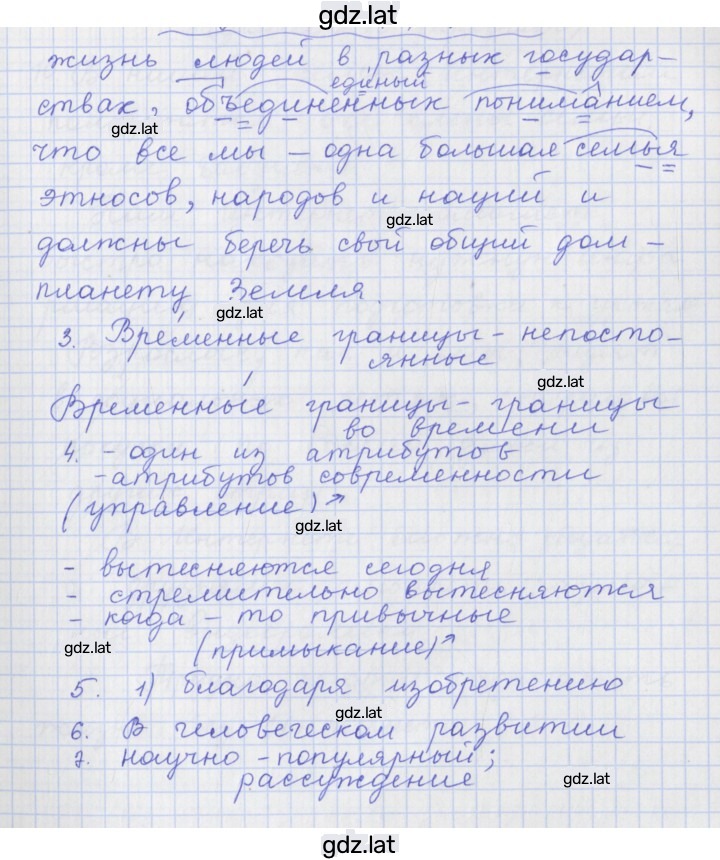 gdz.lat
жизнь людей в разных государ-
единый
ствах, объединённых пониманием,
gdz.lat
что все мы - одна большая семья
этносов, народов и наций и
gdz.lat
должны беречь свой общий дом -
планету Земля.
gdz.lat
3. Вре́менные границы - непосто-
янные
gdz.lat
Временны́е границы - границы
во времени
4. - один из атрибутов
- атрибутов современности
(управление)
gdz.lat
- вытесняются сегодня
- стремительно вытесняются
- когда - то привычные
gdz.lat
(примыкание)
5. 1) благодаря изобретению
gdz.lat
6. В человеческом развитии
7. научно - популярный;
рассуждение
gdz.lat
gdz.lat